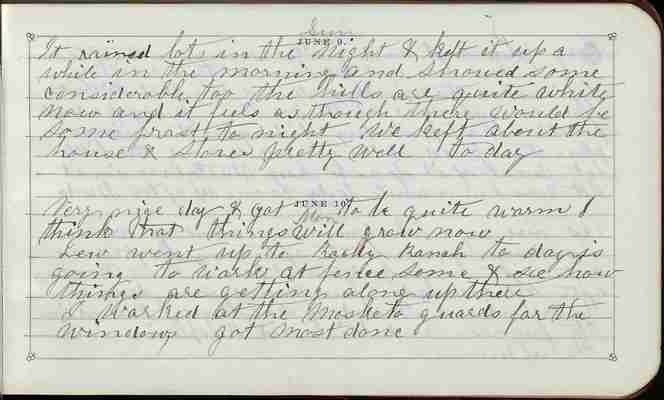 Sun
JUNE 9.
It rained lots in the Night & kept it up a
while in the morning and snowed some
considerable too the hills are quite white
now and it feels as though there would be
some frost to night We kept about the
house & stove pretty well to day
JUNE 10.
Mon
Very nice day & got to be quite warm I
think that things will grow now
Lew went up to Rocky Ranch to day is
going to work at fence some & see how
things are getting along up there
I worked at the Musketo guards for the
windows got most done